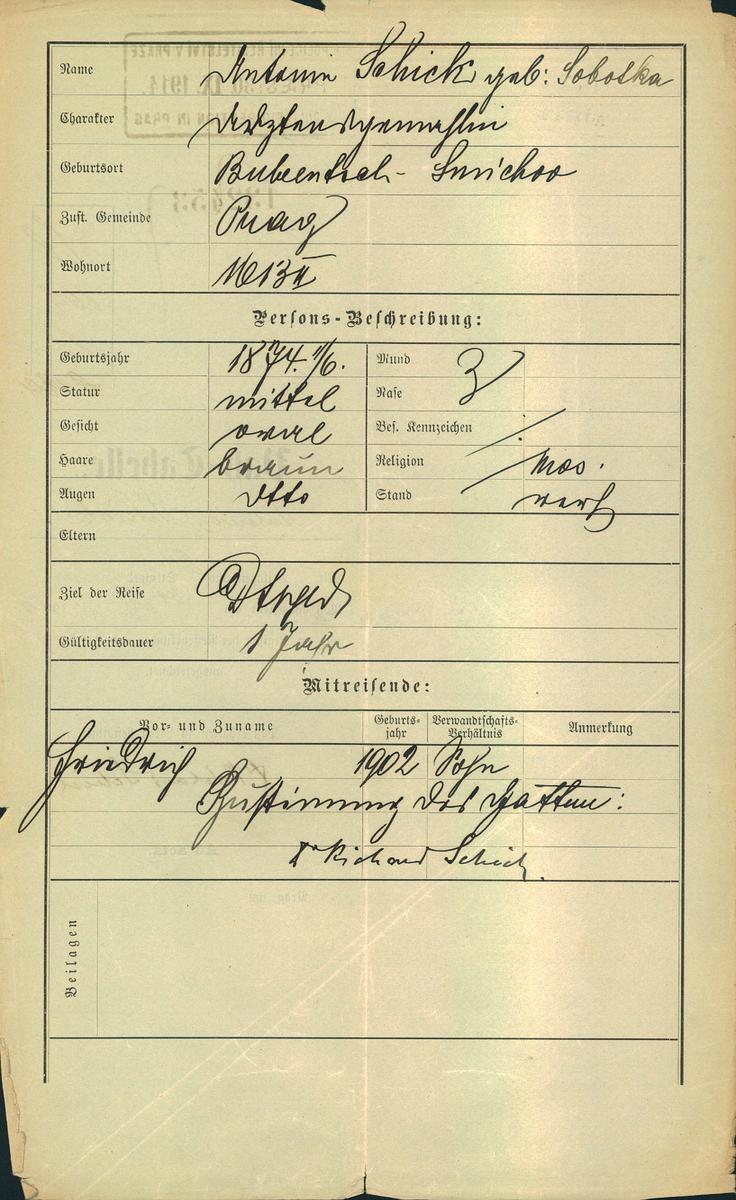 Name Antonie Schick geb: Sobotka
Charakter Arztensgemahlin
Geburtsort Bubentsch - Smichov
Zust. Gemeinde Prag
Wohnort 1613 II
Persons-Beschreibung:
Geburtsjahr 1874. 11/6. Mund 3
Statur mittel Nase
Gesicht oval Bes. Kennzeichen ./.
Haare braun Religion mos.
Augen dtto Stand verh
Eltern
Ziel der Reise Dtschld
Gültigkeitsdauer 1 Jahr
Mitreisende:
Vor- und Zuname Geburts-jahr Verwandtschafts-Verhältnis Anmerkung
Friedrich 1902 Sohn
Zustimmung des Gatten:
Dr Richard Schick.
Beilagen